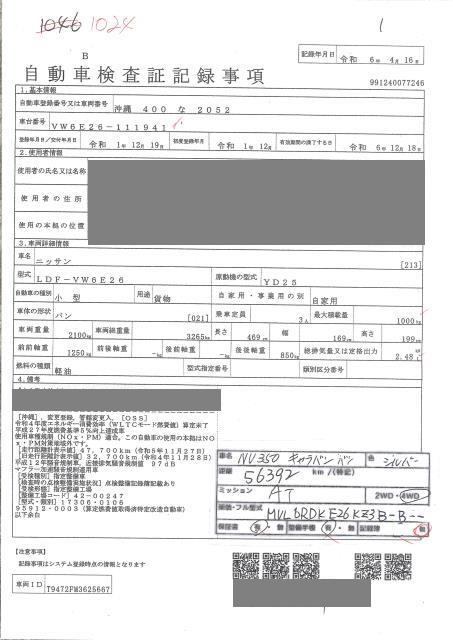 1046 1024
1
B
記録年月日 令和 6年 4月16日
自動車検査証記録事項
991240077246
1.基本情報
自動車登録番号又は車両番号 沖縄 400 な 2052
車台番号 VW6E26-111941
登録年月日/交付年月日 令和 1年12月19日 初度登録年月 令和 1年12月 有効期間の満了する日 令和 6年12月18日
2.使用者情報
使用者の氏名又は名称
使用者の住所
使用の本拠の位置
3.車両詳細情報
車名 ニッサン [213]
型式 LDF-VW6E26 原動機の型式 YD25
自動車の種別 小型 用途 貨物 自家用・事業用の別 自家用
車体の形状 バン [021] 乗車定員 3人 最大積載量 1000kg
車両重量 2100kg 車両総重量 3265kg 長さ 469cm 幅 169cm 高さ 199cm
前前軸重 1250kg 前後軸重 -kg 後前軸重 -kg 後後軸重 850kg 総排気量又は定格出力 2.48L
燃料の種類 軽油 型式指定番号 類別区分番号
4.備考
[沖縄],変更登録,管轄変更入,[OSS]
令和4年度エネルギー消費効率(WLTCモード燃費値)算定未了
平成27年度燃費基準5%向上達成車
使用車種規制(NOx・PM)適合,この自動車の使用の本拠はNOx・PM対策地域外です。
[走行距離計表示値]47,700km(令和5年11月27日)
[旧走行距離計表示値]32,700km(令和4年11月28日)
平成12年騒音規制車,近接排気騒音規制値 97dB
マフラー加速騒音規制適用車
[受検種別]指定整備車
[検査時の点検整備実施状況]点検整備記録簿記載あり
[受検形態]指定整備工場
[整備工場コード]42-00247
[型式]17306-0106
95912-0003(算定燃費値取得済特定改造自動車)
以下余白
車名 NV350 キャラバンバン 色 シルバー
距離 56392 km/(特記)
ミッション AT 2WD・4WD
類別・フル型式 MVL6RDKE26KZ3B-B--
保証書 有・無 整備手帳 有・無 記録簿 有・無
【注意事項】
記録事項はシステム登録時点の情報となります
車両ID T9472FM3625667